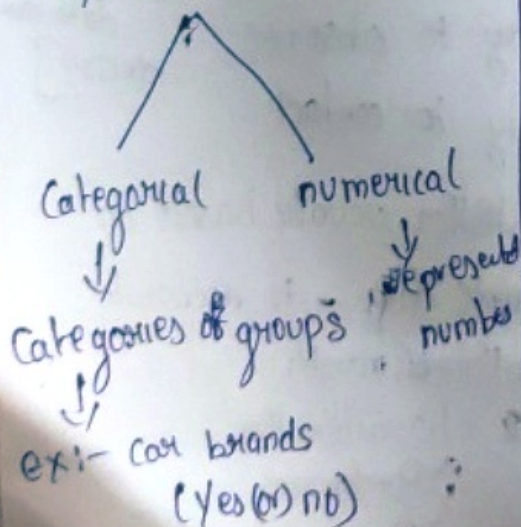 Categorial numerical
Categories of groups represents
number
ex:- car brands
(Yes (or) no)